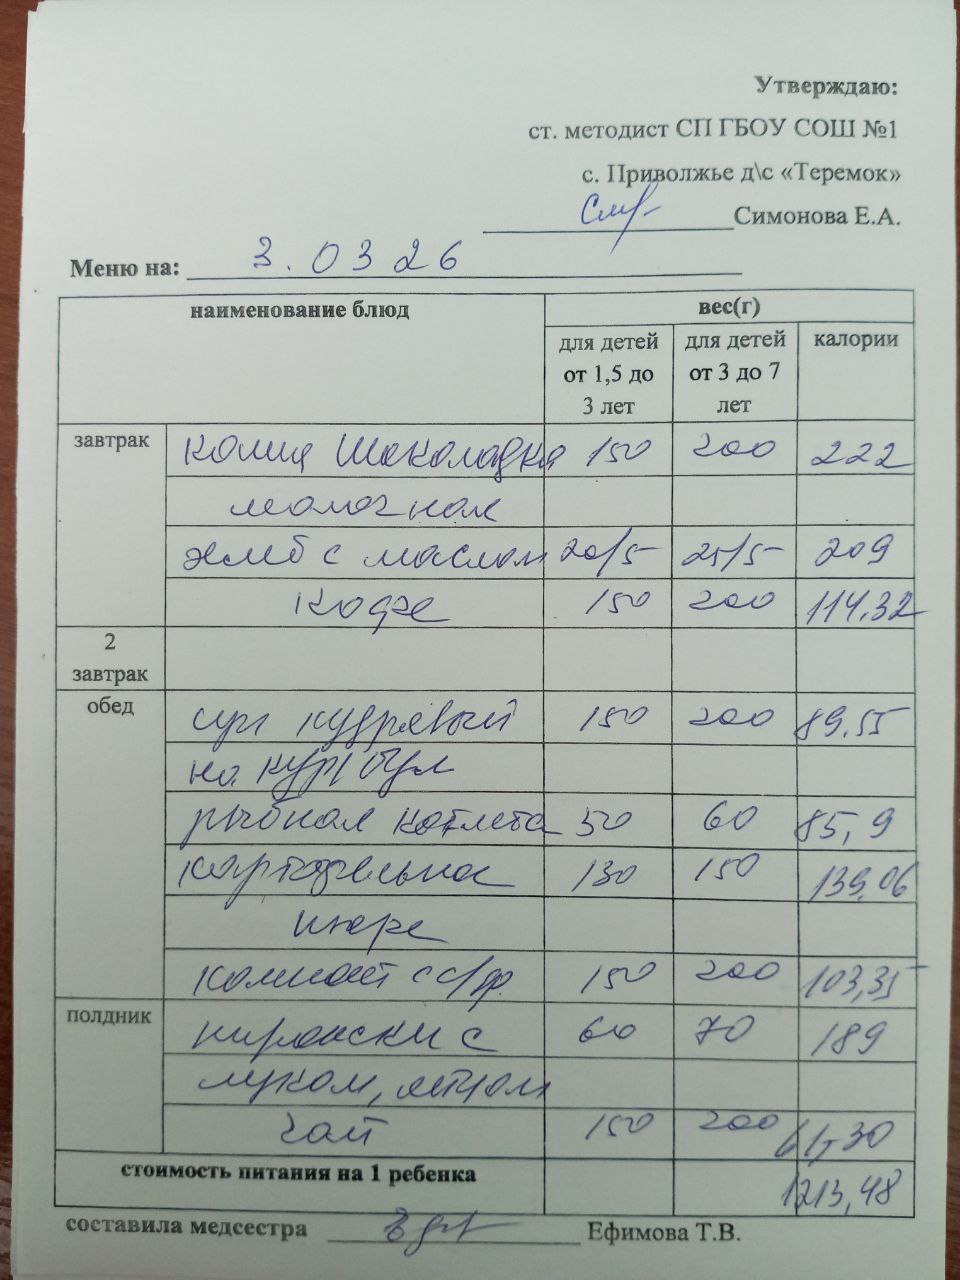 Утверждаю:
ст. методист СП ГБОУ СОШ №1
с. Приволжье д\с «Теремок»
Симонова Е.А.
Меню на: 3.03 26
наименование блюд вес(г)
для детей от 1,5 до 3 лет для детей от 3 до 7 лет калории
завтрак каша Шоколадка 150 200 222
молочная
хлеб с маслом 20/5 25/5 209
Кофе 150 200 114.32
2 завтрак
обед суп кудрявый 150 200 89.55
на кур бул
рыбная котлета 50 60 85,9
картофельное 130 150 139.06
пюре
компот с с/фр. 150 200 103,35
полдник пирожки с 60 70 189
луком, яйцом
чай 150 200 61,30
стоимость питания на 1 ребенка 1213,48
составила медсестра Ефимова Т.В.